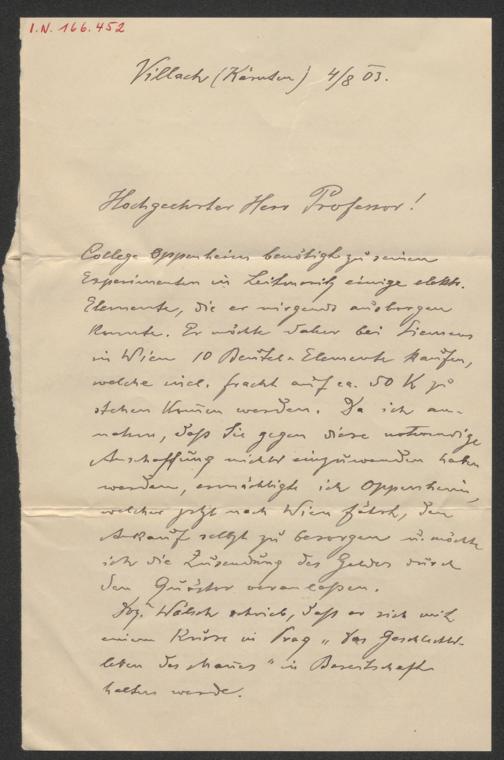 I.N. 166.452
Villach (Kärnten) 4/8 03.
Hochgeehrter Herr Professor!
College Oppenheim benötigt zu seinen
Experimenten in Leitmeritz einige elektr.
Elemente, die er nirgends ausborgen
konnte. Er möchte daher bei Siemens
in Wien 10 Beutel-Elemente kaufen,
welche incl. Fracht auf ca. 50 K zu
stehen kommen werden. Da ich an-
nehme, daß Sie gegen diese notwendige
Anschaffung nichts einzuwenden haben
werden, ermächtigte ich Oppenheim,
welcher jetzt nach Wien fährt, den
Ankauf selbst zu besorgen u. möchte
ich die Zusendung des Geldes durch
den Quästor veranlassen.
Doz. Wälsch schrieb, daß er sich mit
einem Kurse in Prag „das Geschlechts-
leben des" in Bereitschaft
halten werde.